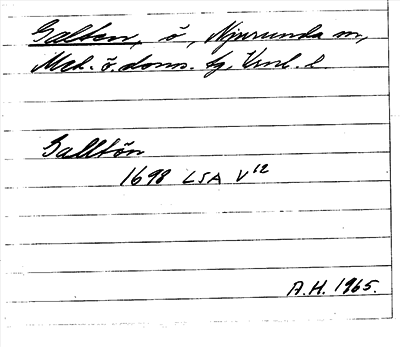 Galten, ö, Njurunda sn,
Med. ö. doms. tg, Vnl. l.
Galltön
1698 LSA V¹²
A.H. 1965.